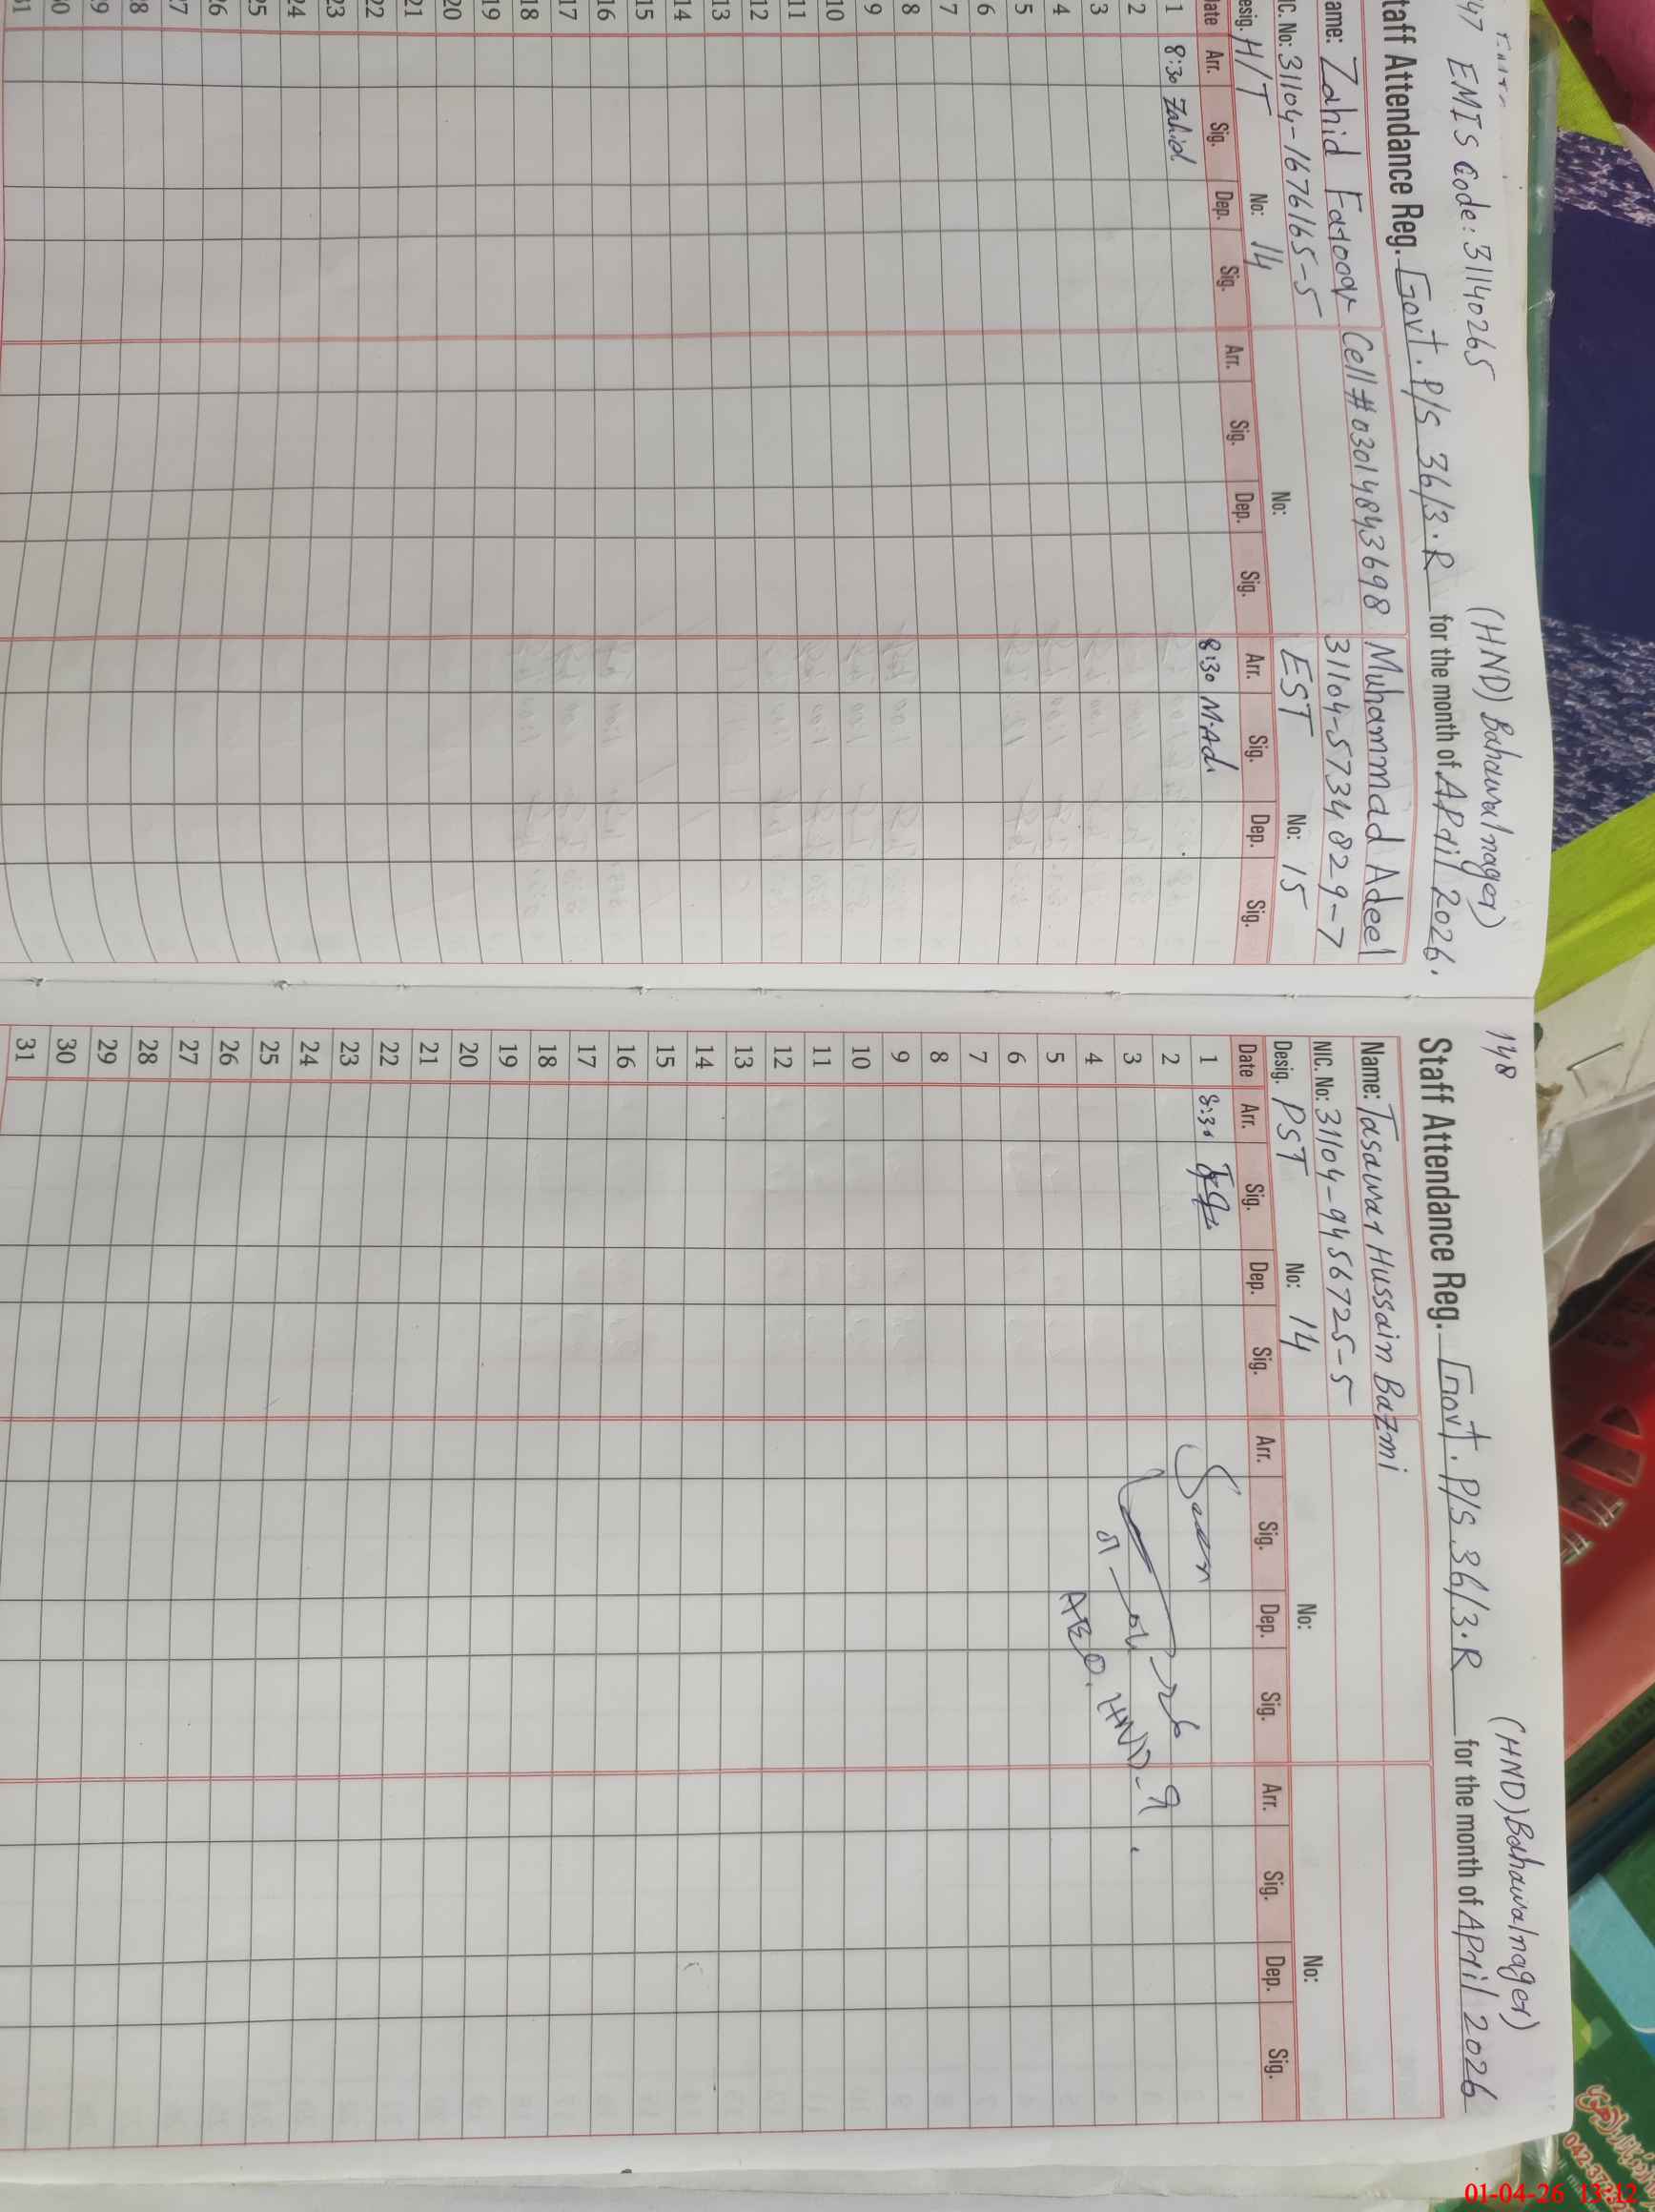 47 EMIS Code: 31140265
(HND) Bahawalnager)
taff Attendance Reg. Govt. P/S 36/3.R for the month of APril 2026.
ame: Zahid Farooq Cell# 03014843698 Muhammad Adeel
IC. No: 31104-1676165-5 31104-5734829-7
esig. H/T No: 14 No: EST No: 15
ate Arr. Sig. Dep. Sig. Arr. Sig. Dep. Sig. Arr. Sig. Dep. Sig.
1 8:30 Zahid 8:30 M.Ad.
2
3
4
5
6
7
8
9
10
11
12
13
14
15
16
17
18
19
20
21
22
23
24
25
26
27
28
29
30
31
148
(HND) Bahawalnager)
Staff Attendance Reg. Govt. P/S 36/3.R for the month of APril 2026
Name: Tasawar Hussain Bazmi
NIC. No: 31104-9456725-5
Desig. PST No: 14 No: No:
Date Arr. Sig. Dep. Sig. Arr. Sig. Dep. Sig. Arr. Sig. Dep. Sig.
1 8:30
2
3
4
5
6
7
8
9
10
11
12
13
14
15
16
17
18
19
20
21
22
23
24
25
26
27
28
29
30
31
Seen
01-04-26
AEO. HND-9.
01-04-26 13:12